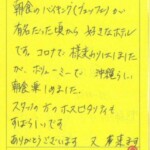 朝食のバイキング(ブッフェ)が
有名だった頃から好きなホテル
です。コロナで様変わりはしました
が、ボリューミーで 沖縄らしい
朝食楽しめました。
スタッフの方のホスピタリティも
すばらしいです
ありがとうございます 又来ます